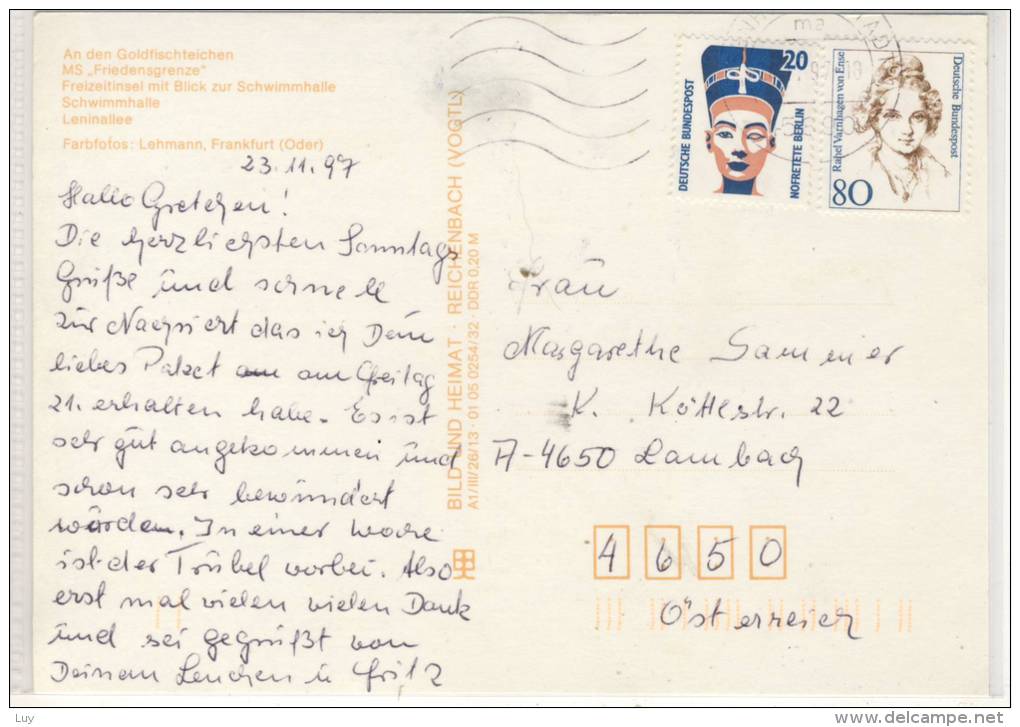 An den Goldfischteichen
MS „Friedensgrenze"
Freizeitinsel mit Blick zur Schwimmhalle
Schwimmhalle
Leninallee
Farbfotos: Lehmann, Frankfurt (Oder)
23.11.97
Hallo Gretchen!
Die herzlichsten Sonntags
Grüße und schnell
zur Nachricht das ich Dein
liebes Paket am Freitag
21. erhalten habe. Es ist
sehr gut angekommen und
schon sehr bewundert
worden. In einer Woche
ist der Trubel vorbei. Also
erst mal vielen vielen Dank
und sei gegrüßt von
Deinen Lenchen u Fritz
BILD UND HEIMAT · REICHENBACH (VOGTL)
A1/III/26/13 · 01 05 0254/32 · DDR 0,20 M
DEUTSCHE BUNDESPOST
20
NOFRETETE BERLIN
Rahel Varnhagen von Ense
80
Deutsche Bundespost
Frau
Margarethe Sammer
K. Köttlstr. 22
A-4650 Lambach
4650
Österreich
Luy
www.delcampe.net